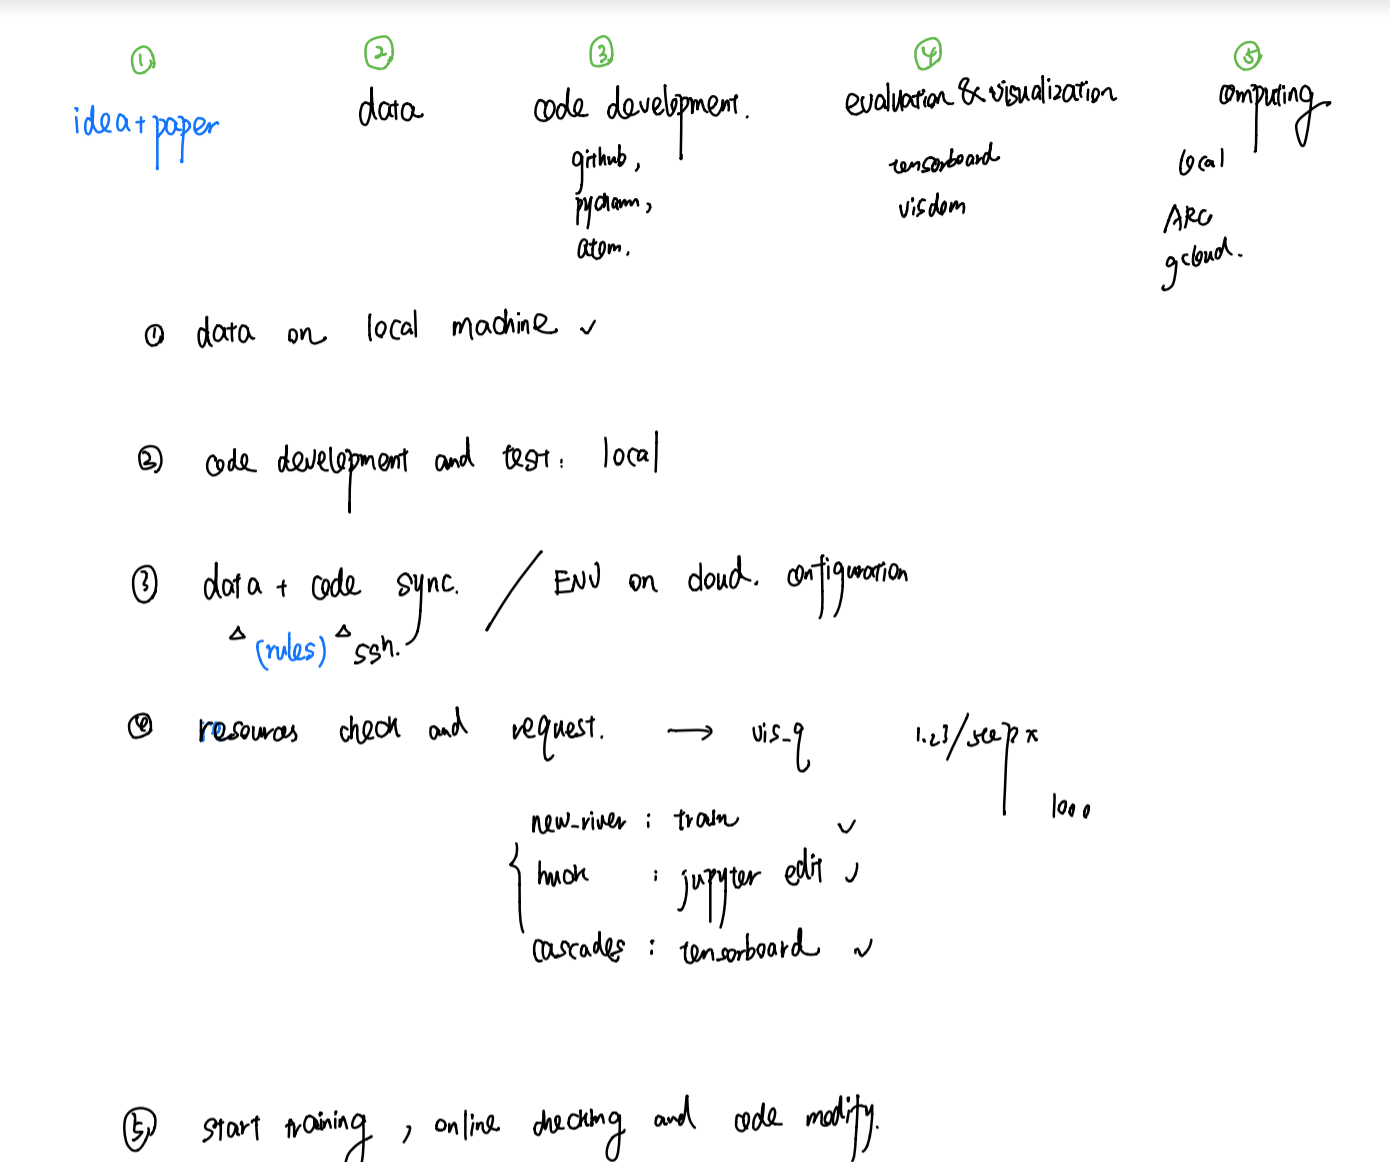 ① ② ③ ④ ⑤
idea + paper data code development. evaluation & visualization computing
github, tensorboard local
pycharm, visdom ARC
atom. gcloud.
① data on local machine ✓
② code development and test: local
③ data + code sync. / ENV on cloud. configuration
△ (rules) △ ssh.
④ resources check and request. → vis_q 1.23/step x
1000
new_river : train ✓
{ huck : jupyter edit ✓
cascades : tensorboard ✓
⑤ start training, online checking and code modify.